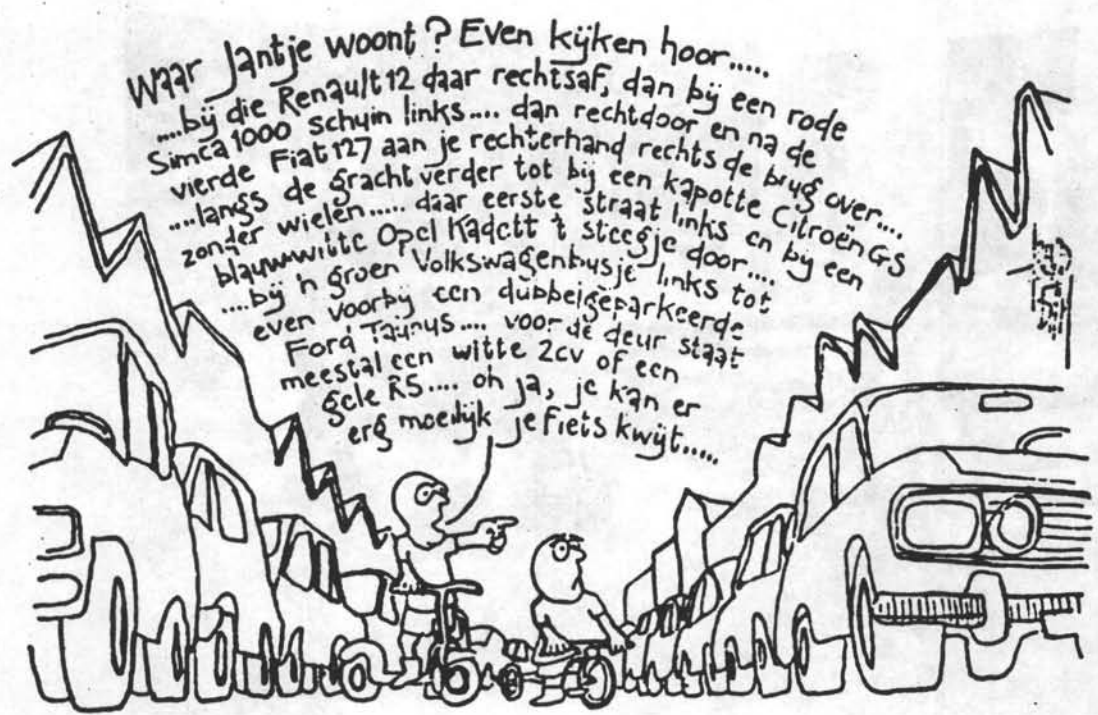 Waar Jantje woont? Even kijken hoor.....
.....bij die Renault 12 daar rechtsaf, dan bij een rode
Simca 1000 schuin links.... dan rechtdoor en na de
vierde Fiat 127 aan je rechterhand rechts de brug over....
....langs de gracht verder tot bij een kapotte Citroën GS
zonder wielen..... daar eerste straat links en bij een
blauw-witte Opel Kadett 't steegje door....
....bij 'n groen Volkswagenbusje links tot
even voorbij een dubbelgeparkeerde
Ford Taunus.... voor de deur staat
meestal een witte 2cv of een
gele R5.... oh ja, je kan er
erg moeilijk je fiets kwijt.....